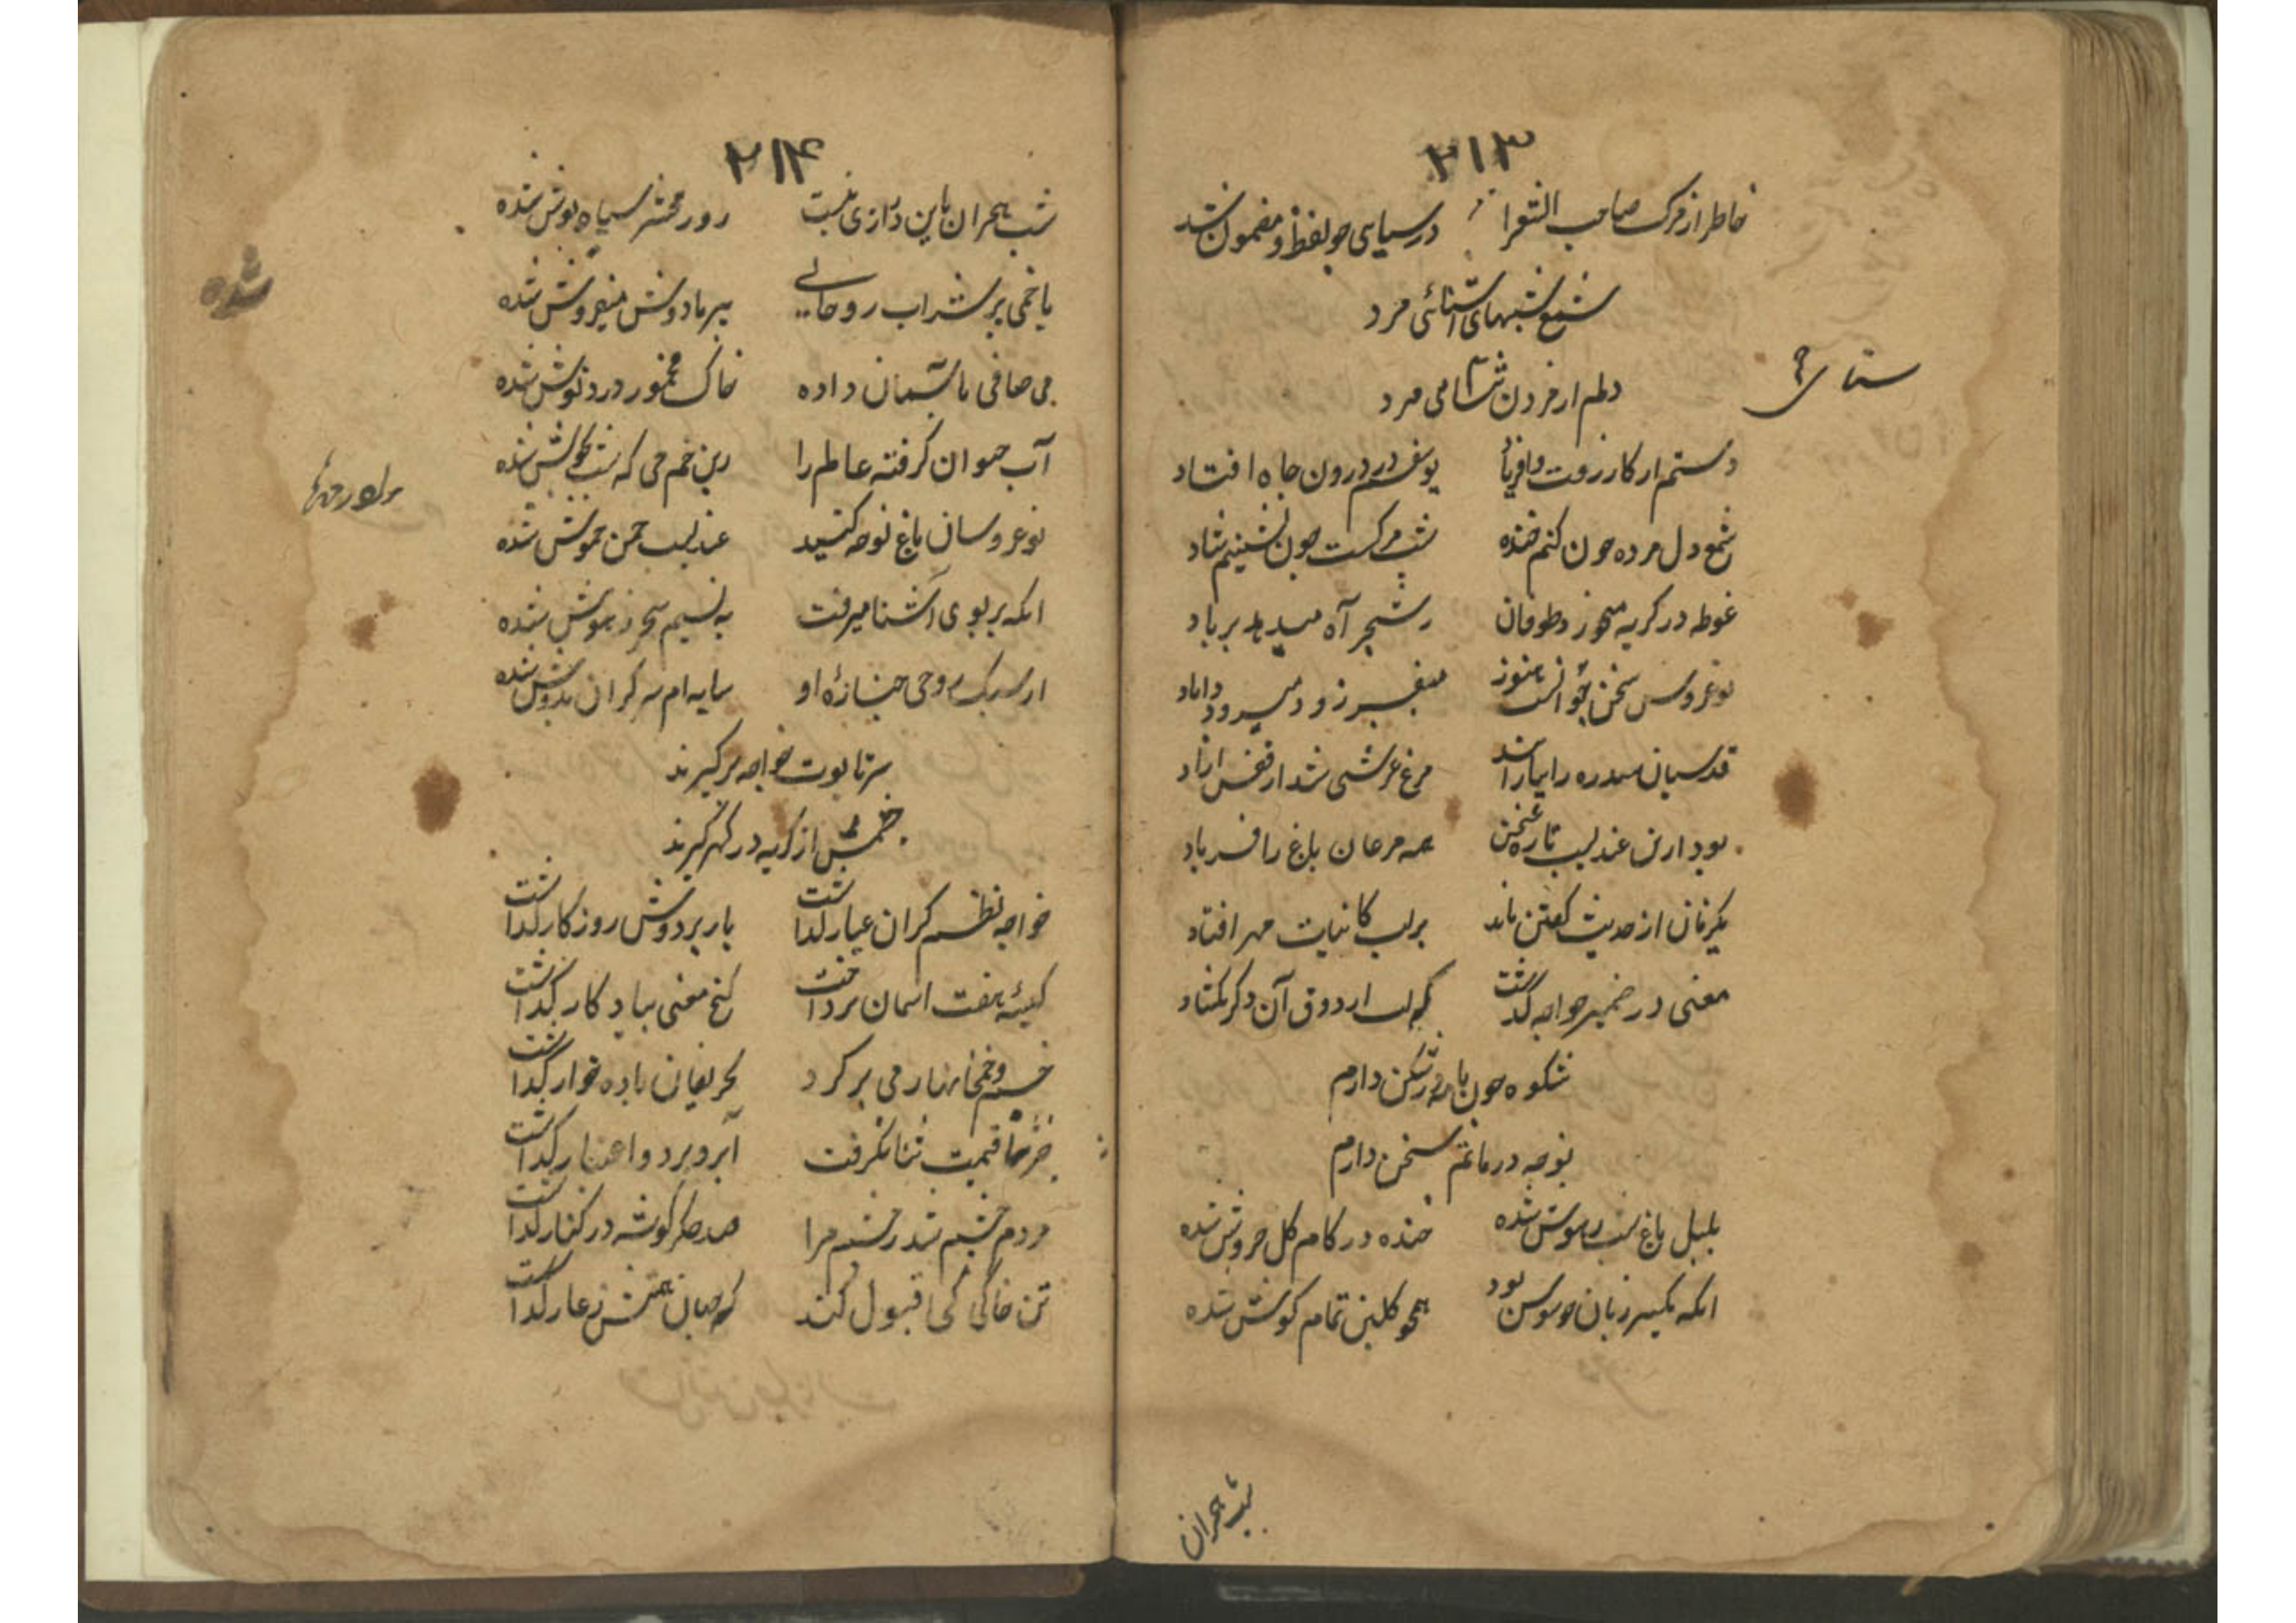 ۲۱۳
خاطر از مرک صاحب الشعرا در سیاهی جو لفظ و مضمون شد
شمع شبهای اشنائی مرد
دلم از مردن ثنامی مرد
دستم از کار رفت و افریاد یوسفم در درون چاه افتاد
شمع دل مرده چون کنم خنده شب مرکست چون نشینم شاد
غوطه در کریه میخورد طوفان شجر آه میدهد بر باد
نوعروس سخن جوانست هنوز
قدسیان سدره را بیارایند مرغ عرشی شد از قفس ازاد
بود ازین عندلیب تازه سخن همه مرغان باغ را فریاد
یکزمان از حدیث کفتن ماند بر لب کاینات مهر افتاد
معنی در ضمیر خواجه کذشت که لب از ذوق آن دکر نکشاد
شکوه چون با مه زشکن دارم
نوحه در ماتم سخن دارم
بلبل باغ شب خموش شده خنده در کام کل خروش شده
انکه یکسر زبان چو سوسن بود همچو کلبن تمام کوش شده
شب هجران
۲۱۴
شب هجران باین درازی نیست روز محشر سیاه پوش شده
با خمی پر شراب روحانی پیر ما دوش میفروش شده
می صافی باسمان داده خاک مخمور درد نوش شده
آب حیوان کرفته عالم را زین خم می که شب بجوش شده
نوعروسان باغ نوحه کنید عندلیب چمن خموش شده
انکه بر بوی آشنا میرفت به نسیم سحر ز هوش شده
از سبک روحی جنازهٔ او سایه ام سر کران بدوش شده
سر تابوت خواجه بر کیرند
چشمش از کریه در کهر کیرند
خواجه نظم کران عیار کذاشت بار بر دوش روزکار کذاشت
کیسهٔ هفت اسمان برداشت کنج معنی بیادکار کذاشت
خم و خمخانها ز می پر کرد بحریفان باده خوار کذاشت
قیمت ثنا نکرفت آبرو برد و اعتبار کذاشت
مردم چشم شد ز چشم مرا صد جکرکوشه در کنار کذاشت
تن خاکی کی قبول کند که جهانی ز عار کذاشت
شده